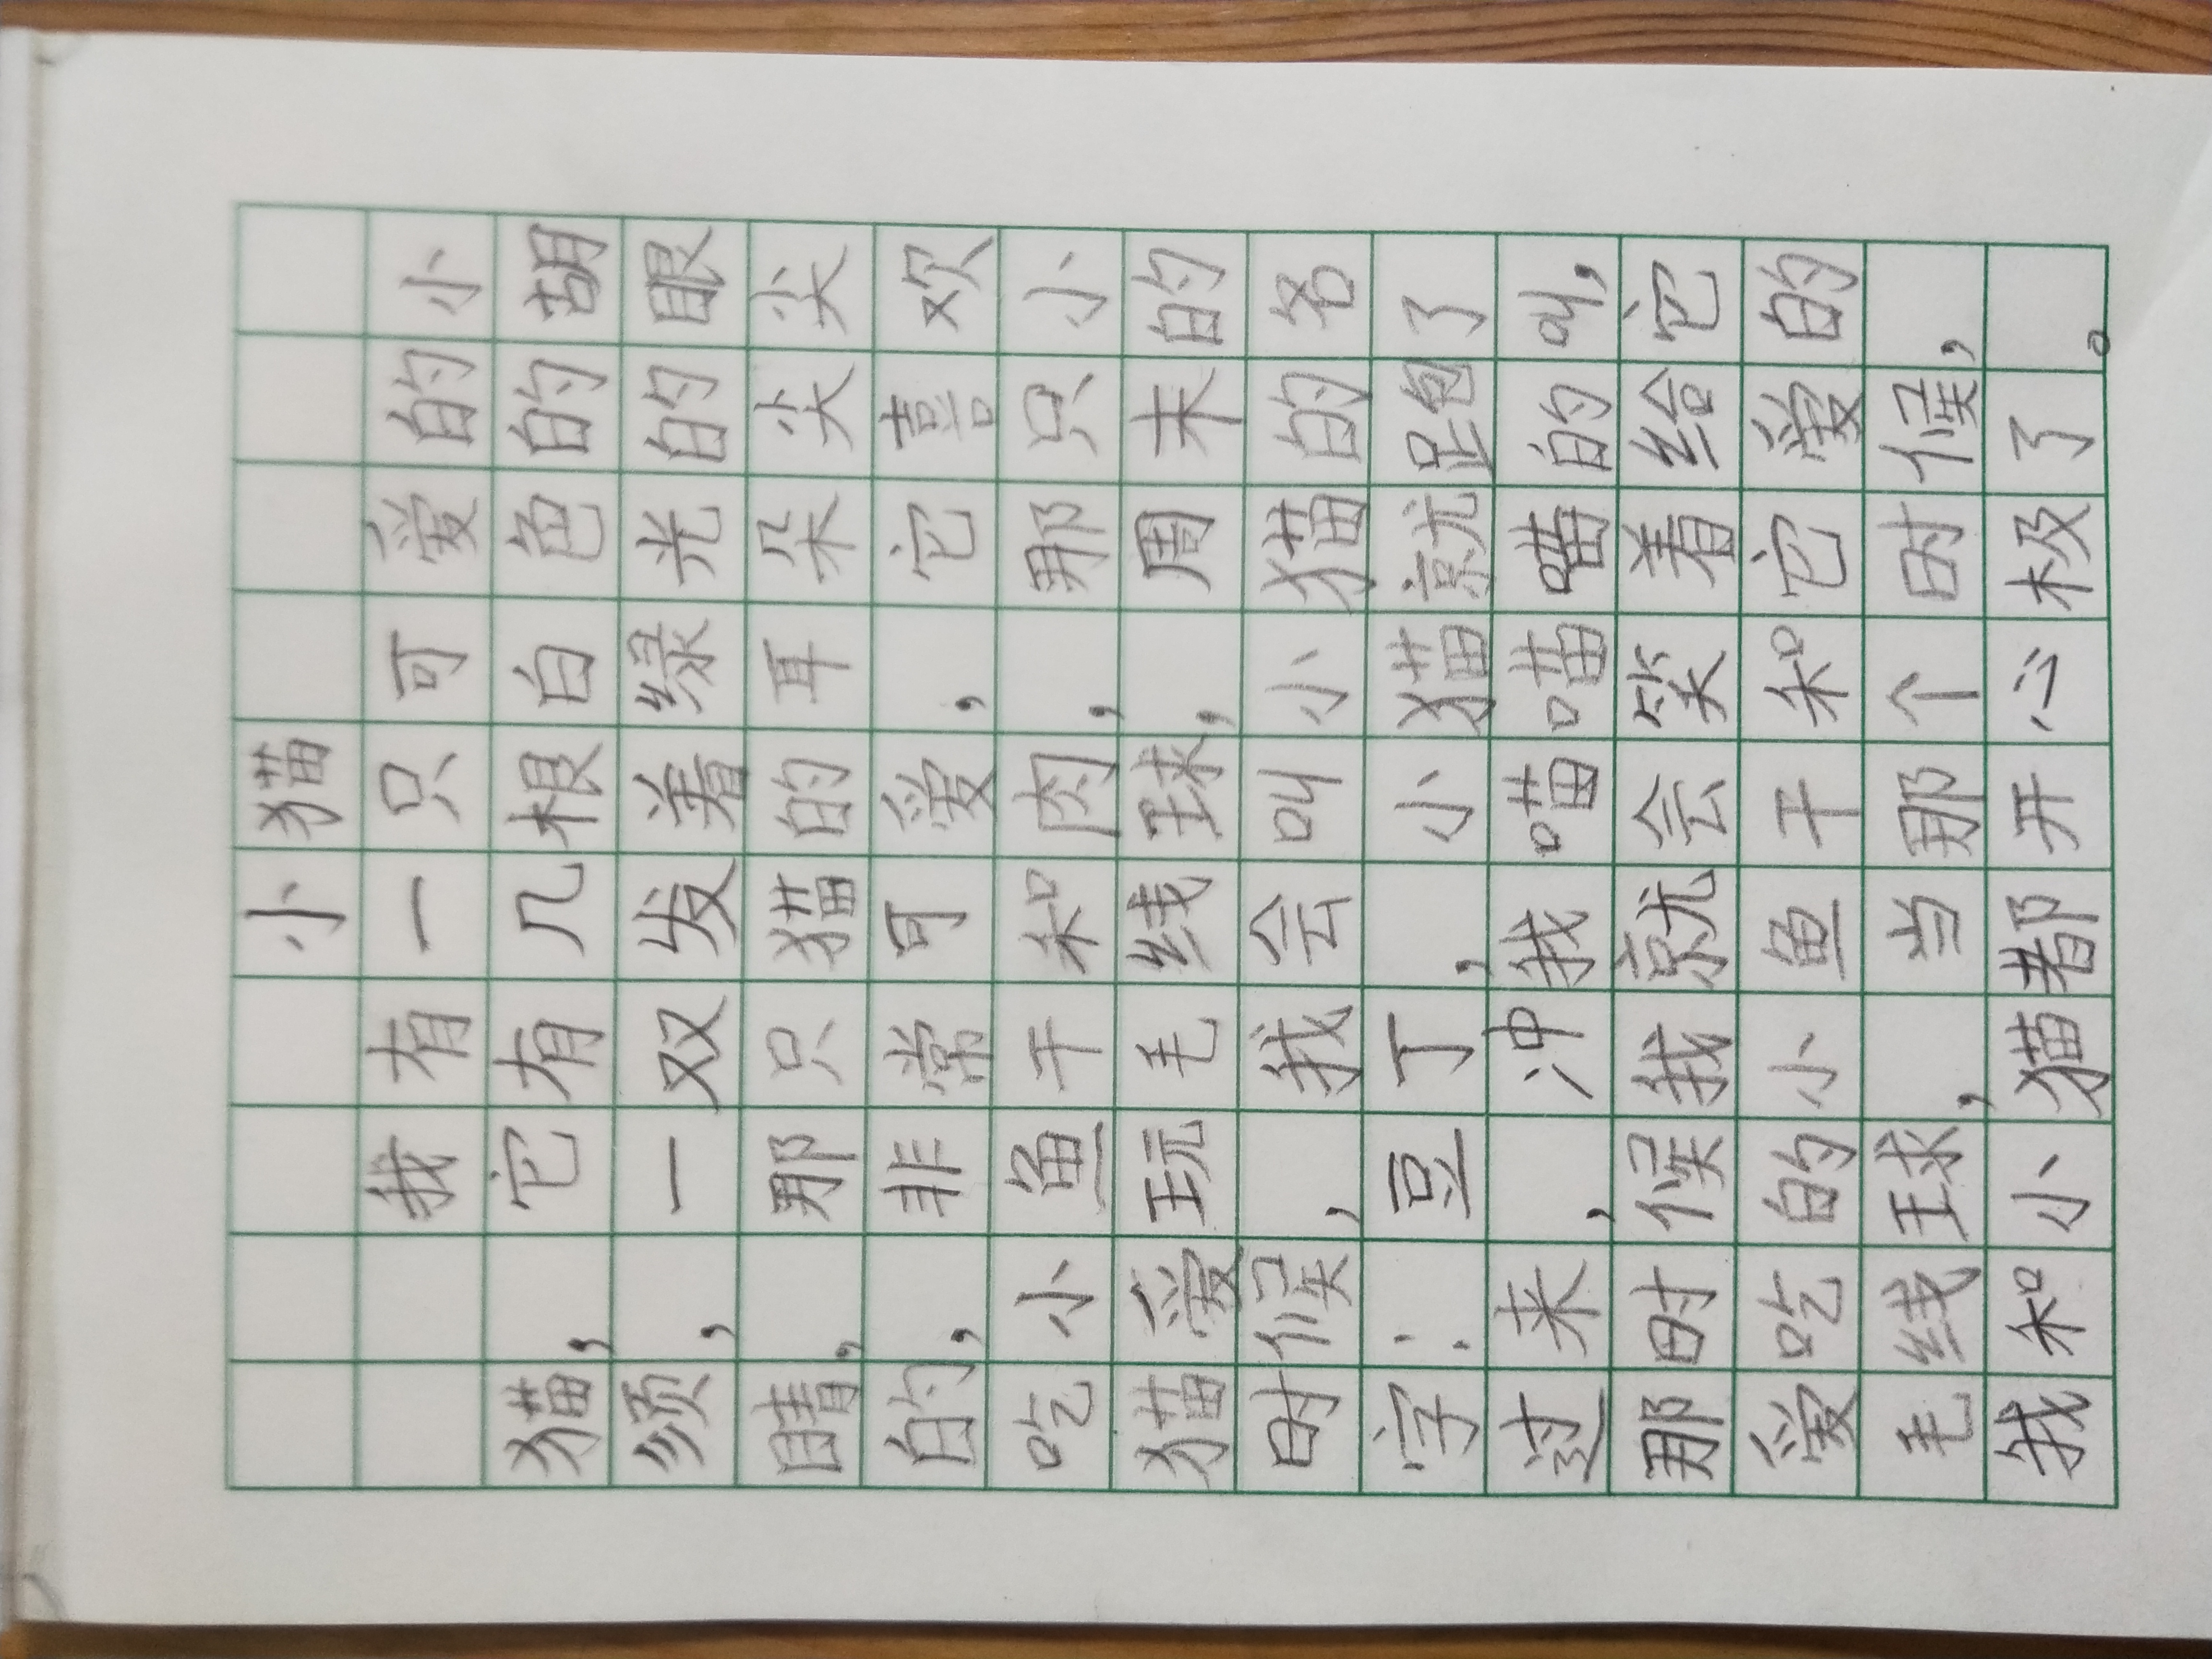 小猫
我有一只可爱的小
猫，它有几根白色的胡
须，一双发着绿光的眼
睛，那只猫的耳朵尖尖
的，非常可爱，它喜欢
吃小鱼干和肉，那只小
猫爱玩毛线球，周末的
时候，我会叫小猫的名
字：豆丁，小猫就跑了
过来，冲我喵喵喵的叫，
那时候我就会笑着给它
爱吃的小鱼干和它爱的
毛线球，当那个时候，
我和小猫都开心极了。